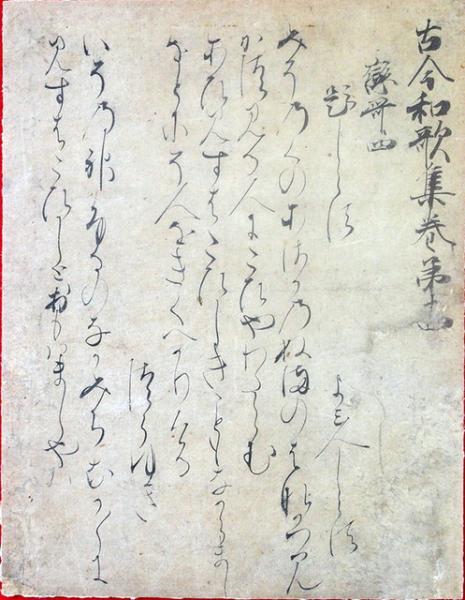 古今和歌集巻第十四
戀哥四
題しらす
よみ人しらす
みちのくのあさかのぬまのはなかつみ
かつ見る人にこひやわたらむ
あひみすはこひしきこともなからまし
をとにそ人をきくへかりける
つらゆき
いその神ふるのなかみちなか〱に
見すはこひしとおもはましやは